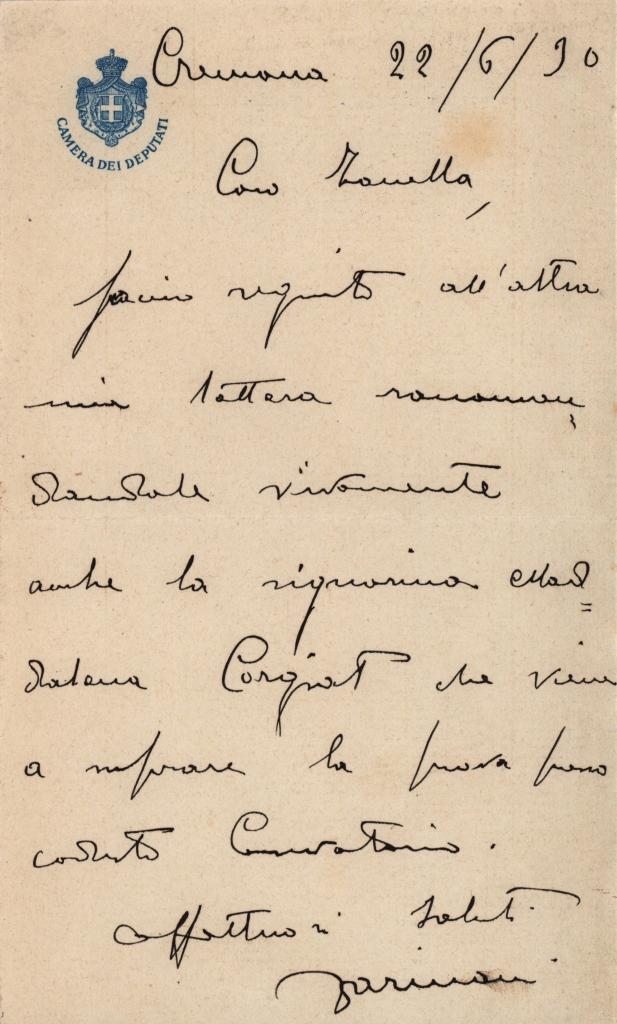 CAMERA DEI DEPUTATI
Cremona 22/6/30
Caro Zanella,
faccio seguito all'altra
mia lettera raccoman
dandole vivamente
anche la signorina Mad=
dalena Corgiat che viene
a superare la prova presso
codesto Conservatorio.
Affettuosi saluti
Farinacci